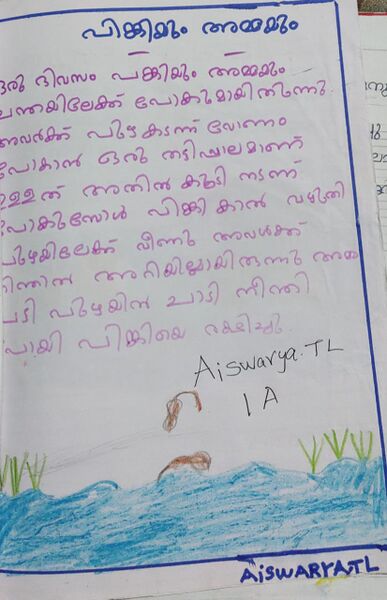 പിങ്കിയും അമ്മയും
ഒരു ദിവസം പങ്കിയും അമ്മയും
ചന്തയിലേക്ക് പോകുമായിരുന്നു.
അവർക്ക് പുഴ കടന്ന് വേണം
പോകാൻ ഒരു തടിപ്പാലമാണ്
ഉള്ളത് അതിൽ കൂടി നടന്ന്
പോകുമ്പോൾ പിങ്കി കാൽ വഴുതി
പുഴയിലേക്ക് വീണു അവൾക്ക്
നീന്താൻ അറിയില്ലായിരുന്നു അമ്മ
പുഴയിൽ ചാടി നീന്തി
പോയി പിങ്കിയെ രക്ഷിച്ചു.
Aiswarya.TL
1 A
AiSWARYA.TL